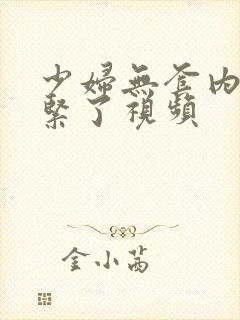 少婦無套內
緊了視頻
金小茜